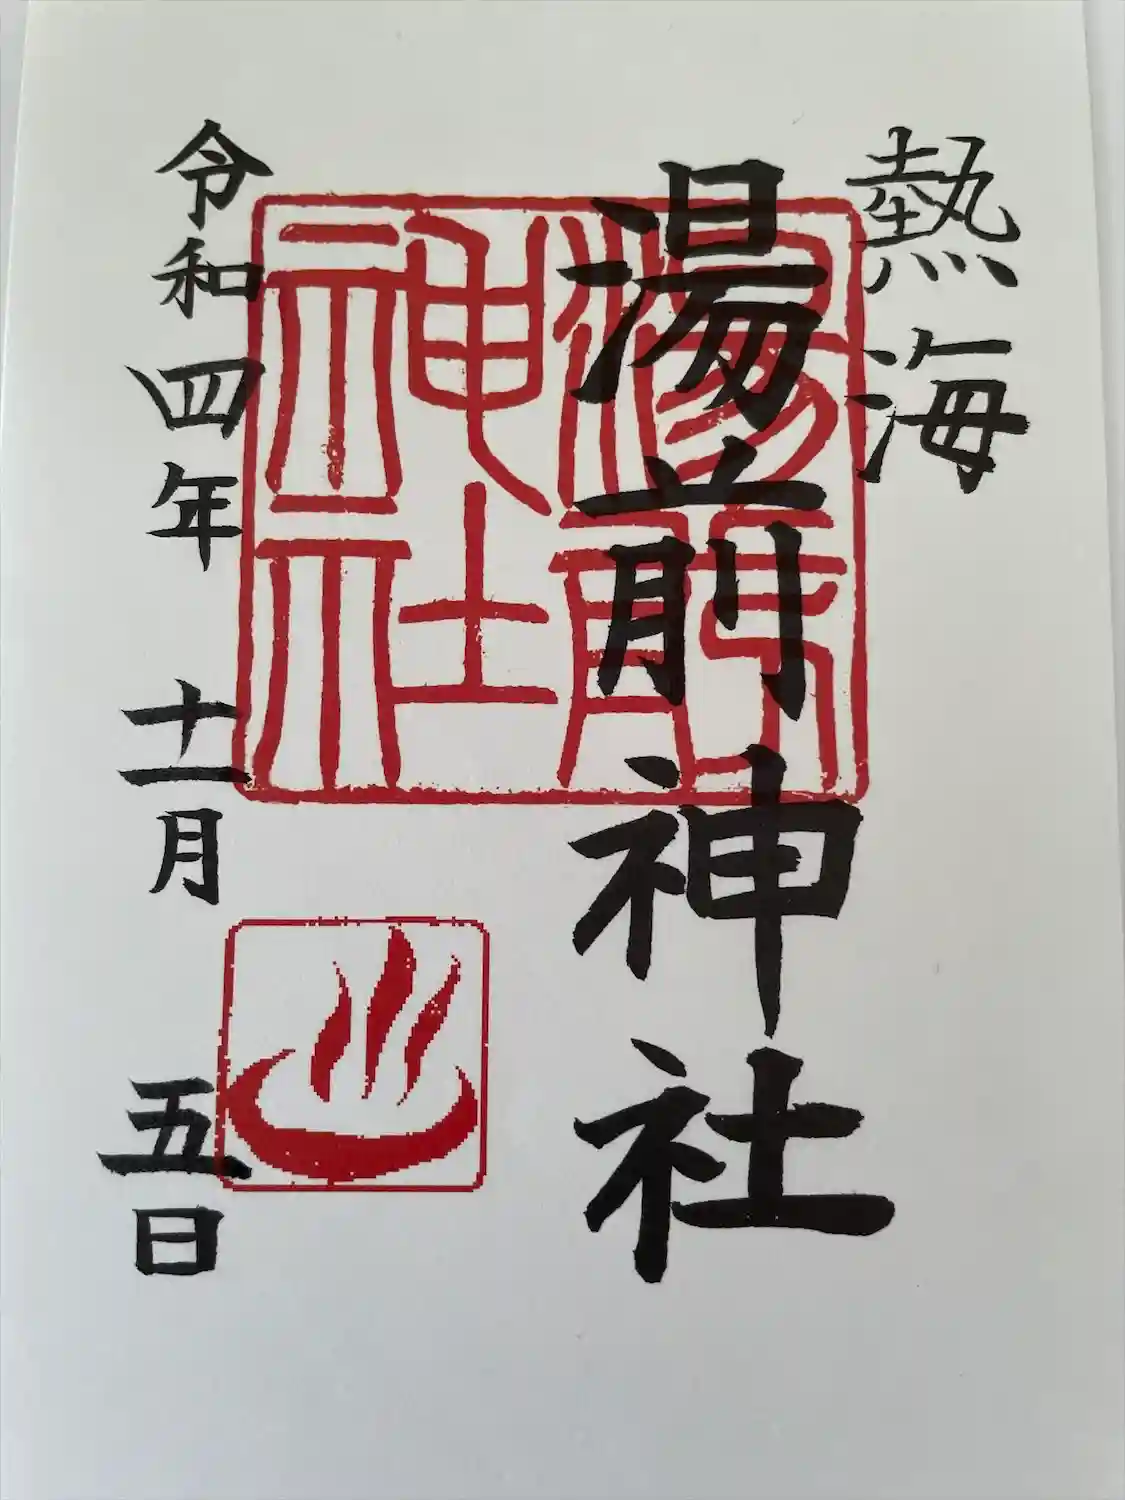 熱海
湯前神社
湯前
神社
令和四年 十一月 五日